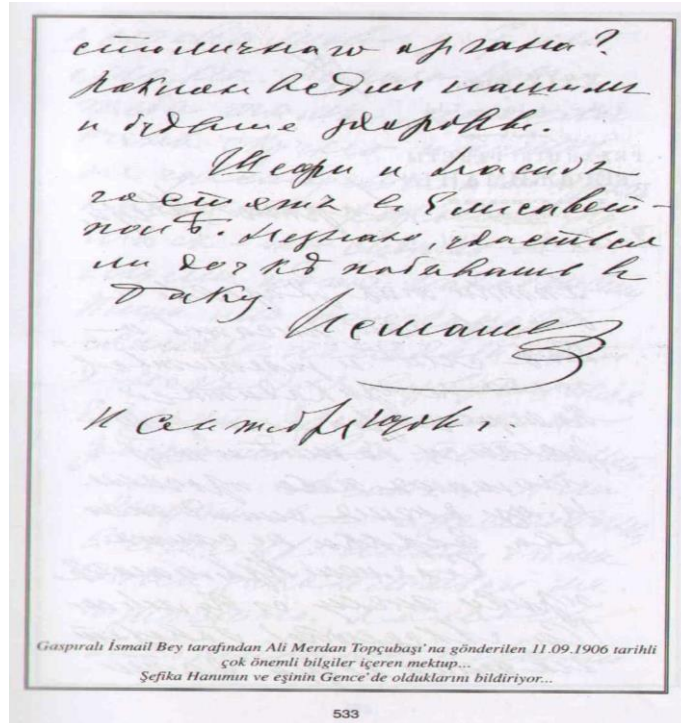 столичнаго органа?
всѣмъ нашимъ
и будьте здоровы.
и
гостятъ въ Елисавет-
полѣ. Незнаю, удастся
ли дочкѣ побывать въ
Баку.
Исмаилъ
11 Сентября 1906 г.
Gaspıralı İsmail Bey tarafından Ali Merdan Topçubaşı'na gönderilen 11.09.1906 tarihli
çok önemli bilgiler içeren mektup...
Şefika Hanımın ve eşinin Gence'de olduklarını bildiriyor...
533